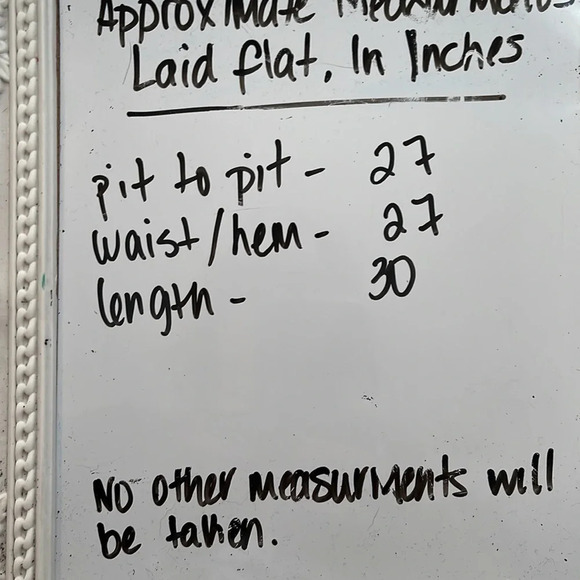 Approximate Measurements
Laid flat. In Inches
pit to pit - 27
waist/hem - 27
length - 30
No other measurments will
be taken.